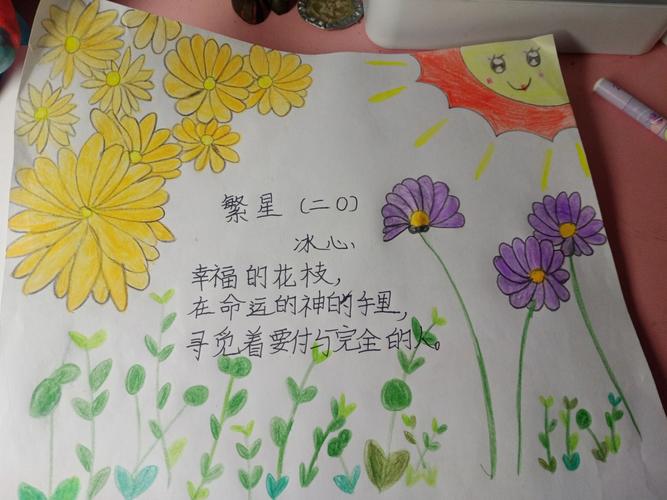 繁星（二0）
冰心
幸福的花枝，
在命运的神的手里，
寻觅着要付与完全的人。